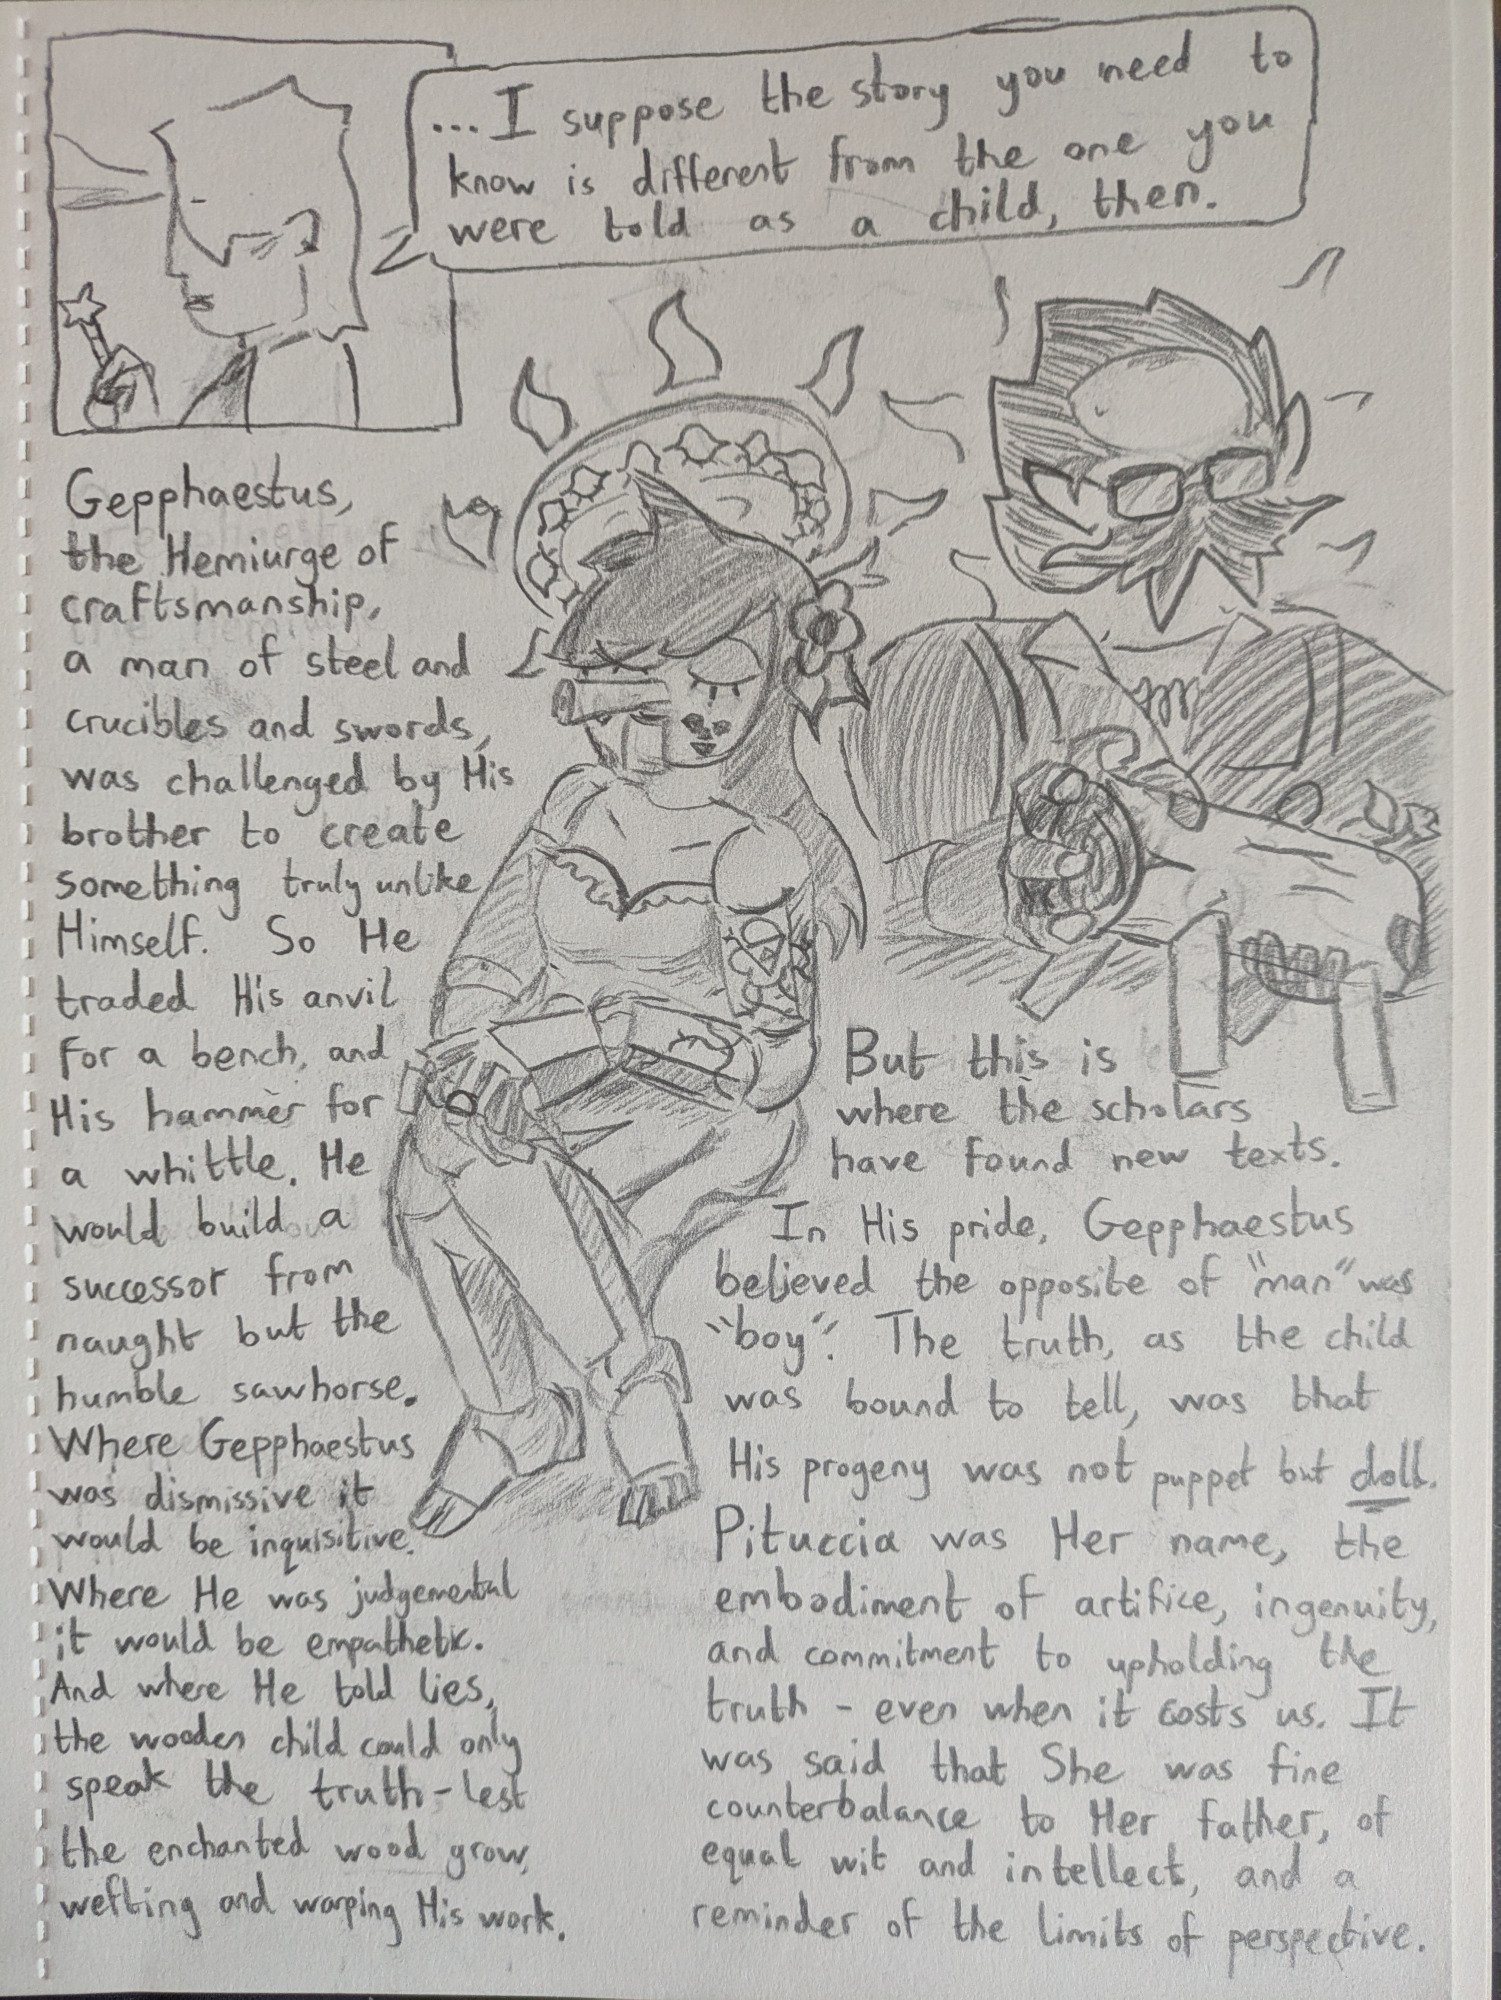 ...I suppose the story you need to
know is different from the one you
were told as a child, then.
Gepphaestus,
the Hemiurge of
craftsmanship,
a man of steel and
crucibles and swords,
was challenged by His
brother to create
something truly unlike
Himself. So He
traded His anvil
for a bench, and
His hammer for
a whittle. He
would build a
successor from
naught but the
humble sawhorse.
Where Gepphaestus
was dismissive it
would be inquisitive.
Where He was judgemental
it would be empathetic.
And where He told lies,
the wooden child could only
speak the truth - lest
the enchanted wood grow,
wefting and warping His work.
But this is
where the scholars
have found new texts.
In His pride, Gepphaestus
believed the opposite of "man" was
"boy". The truth, as the child
was bound to tell, was that
His progeny was not puppet but doll.
Pituccia was Her name, the
embodiment of artifice, ingenuity,
and commitment to upholding the
truth - even when it costs us. It
was said that She was fine
counterbalance to Her father, of
equal wit and intellect, and a
reminder of the limits of perspective.